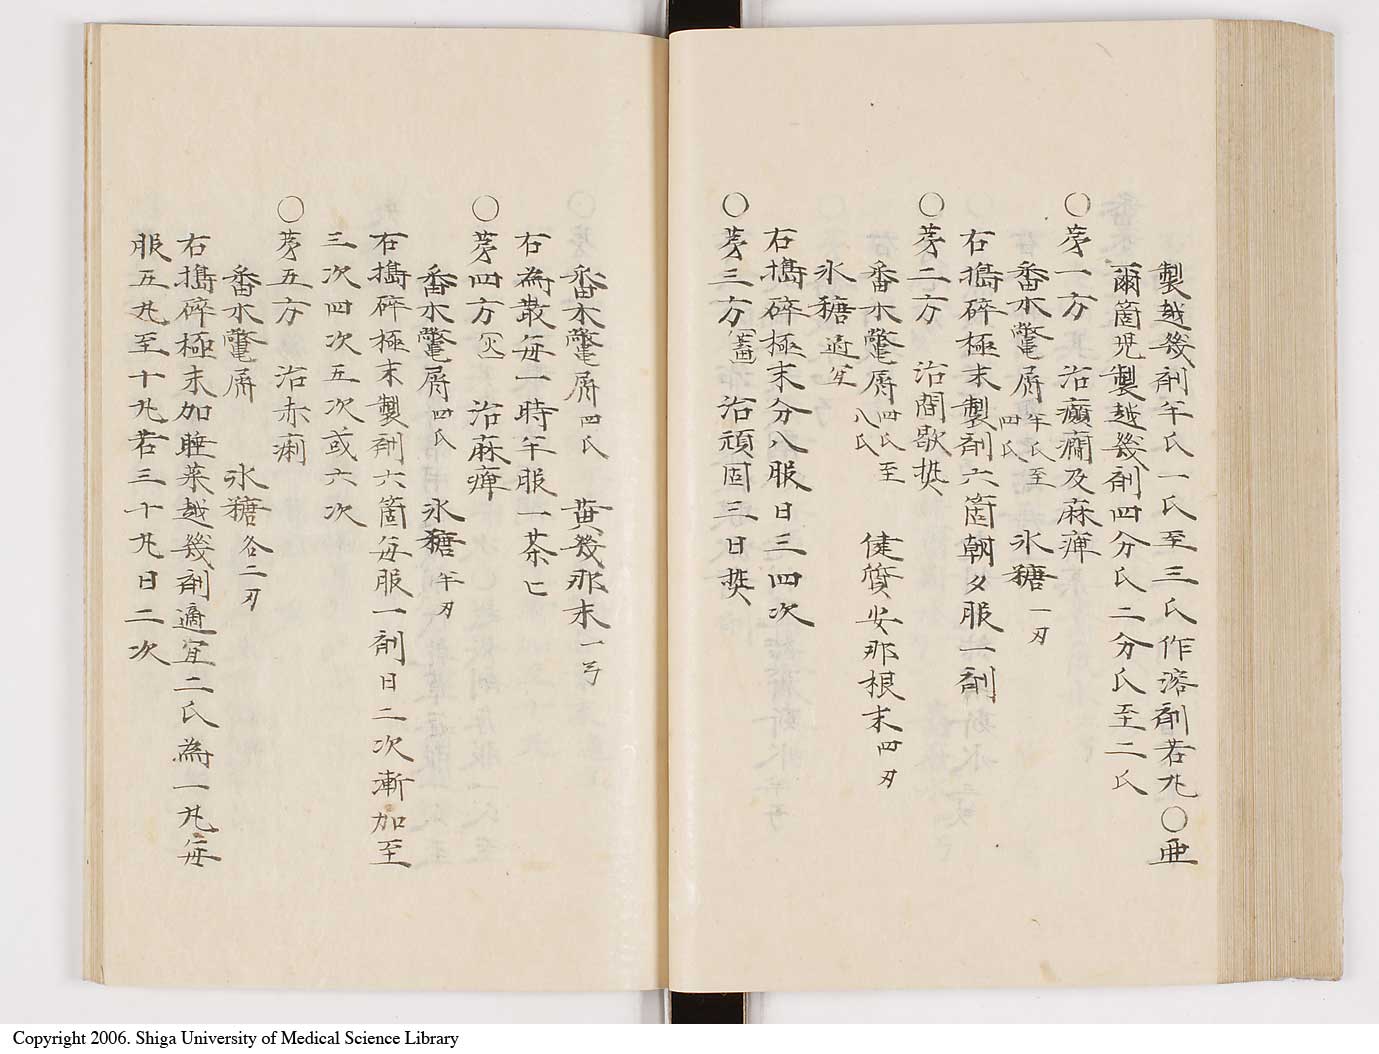 製越幾剤午氏一氏至三氏作溶剤若丸〇亜
爾箇児製越幾剤四分氏二分氏至二氏
〇㐧一方 治癲癇及麻痺
番木鼈屑 半氏至四氏 氷糖 一刃
右擣碎極末製剤六箇朝夕服一剤
〇㐧二方 治間歇熱
番木鼈屑 四氏至八氏 健質安那根末 四刃
氷糖 適宜
右擣碎極末分八服日三四次
〇㐧三方 治頑固三日熱
番木鼈屑 四氏 黄幾那末 一弓
右為散毎一時半服一茶匕
〇㐧四方 治麻痺
番木鼈屑 四氏 氷糖 半刃
右擣碎極末製剤六箇毎服一剤日二次漸加至
三次四次五次或六次
〇㐧五方 治赤痢
番木鼈屑 氷糖 各二刃
右擣碎極末加睡菜越幾剤適宜二氏為一丸毎
服五丸至十丸若三十丸日二次
Copyright 2006. Shiga University of Medical Science Library